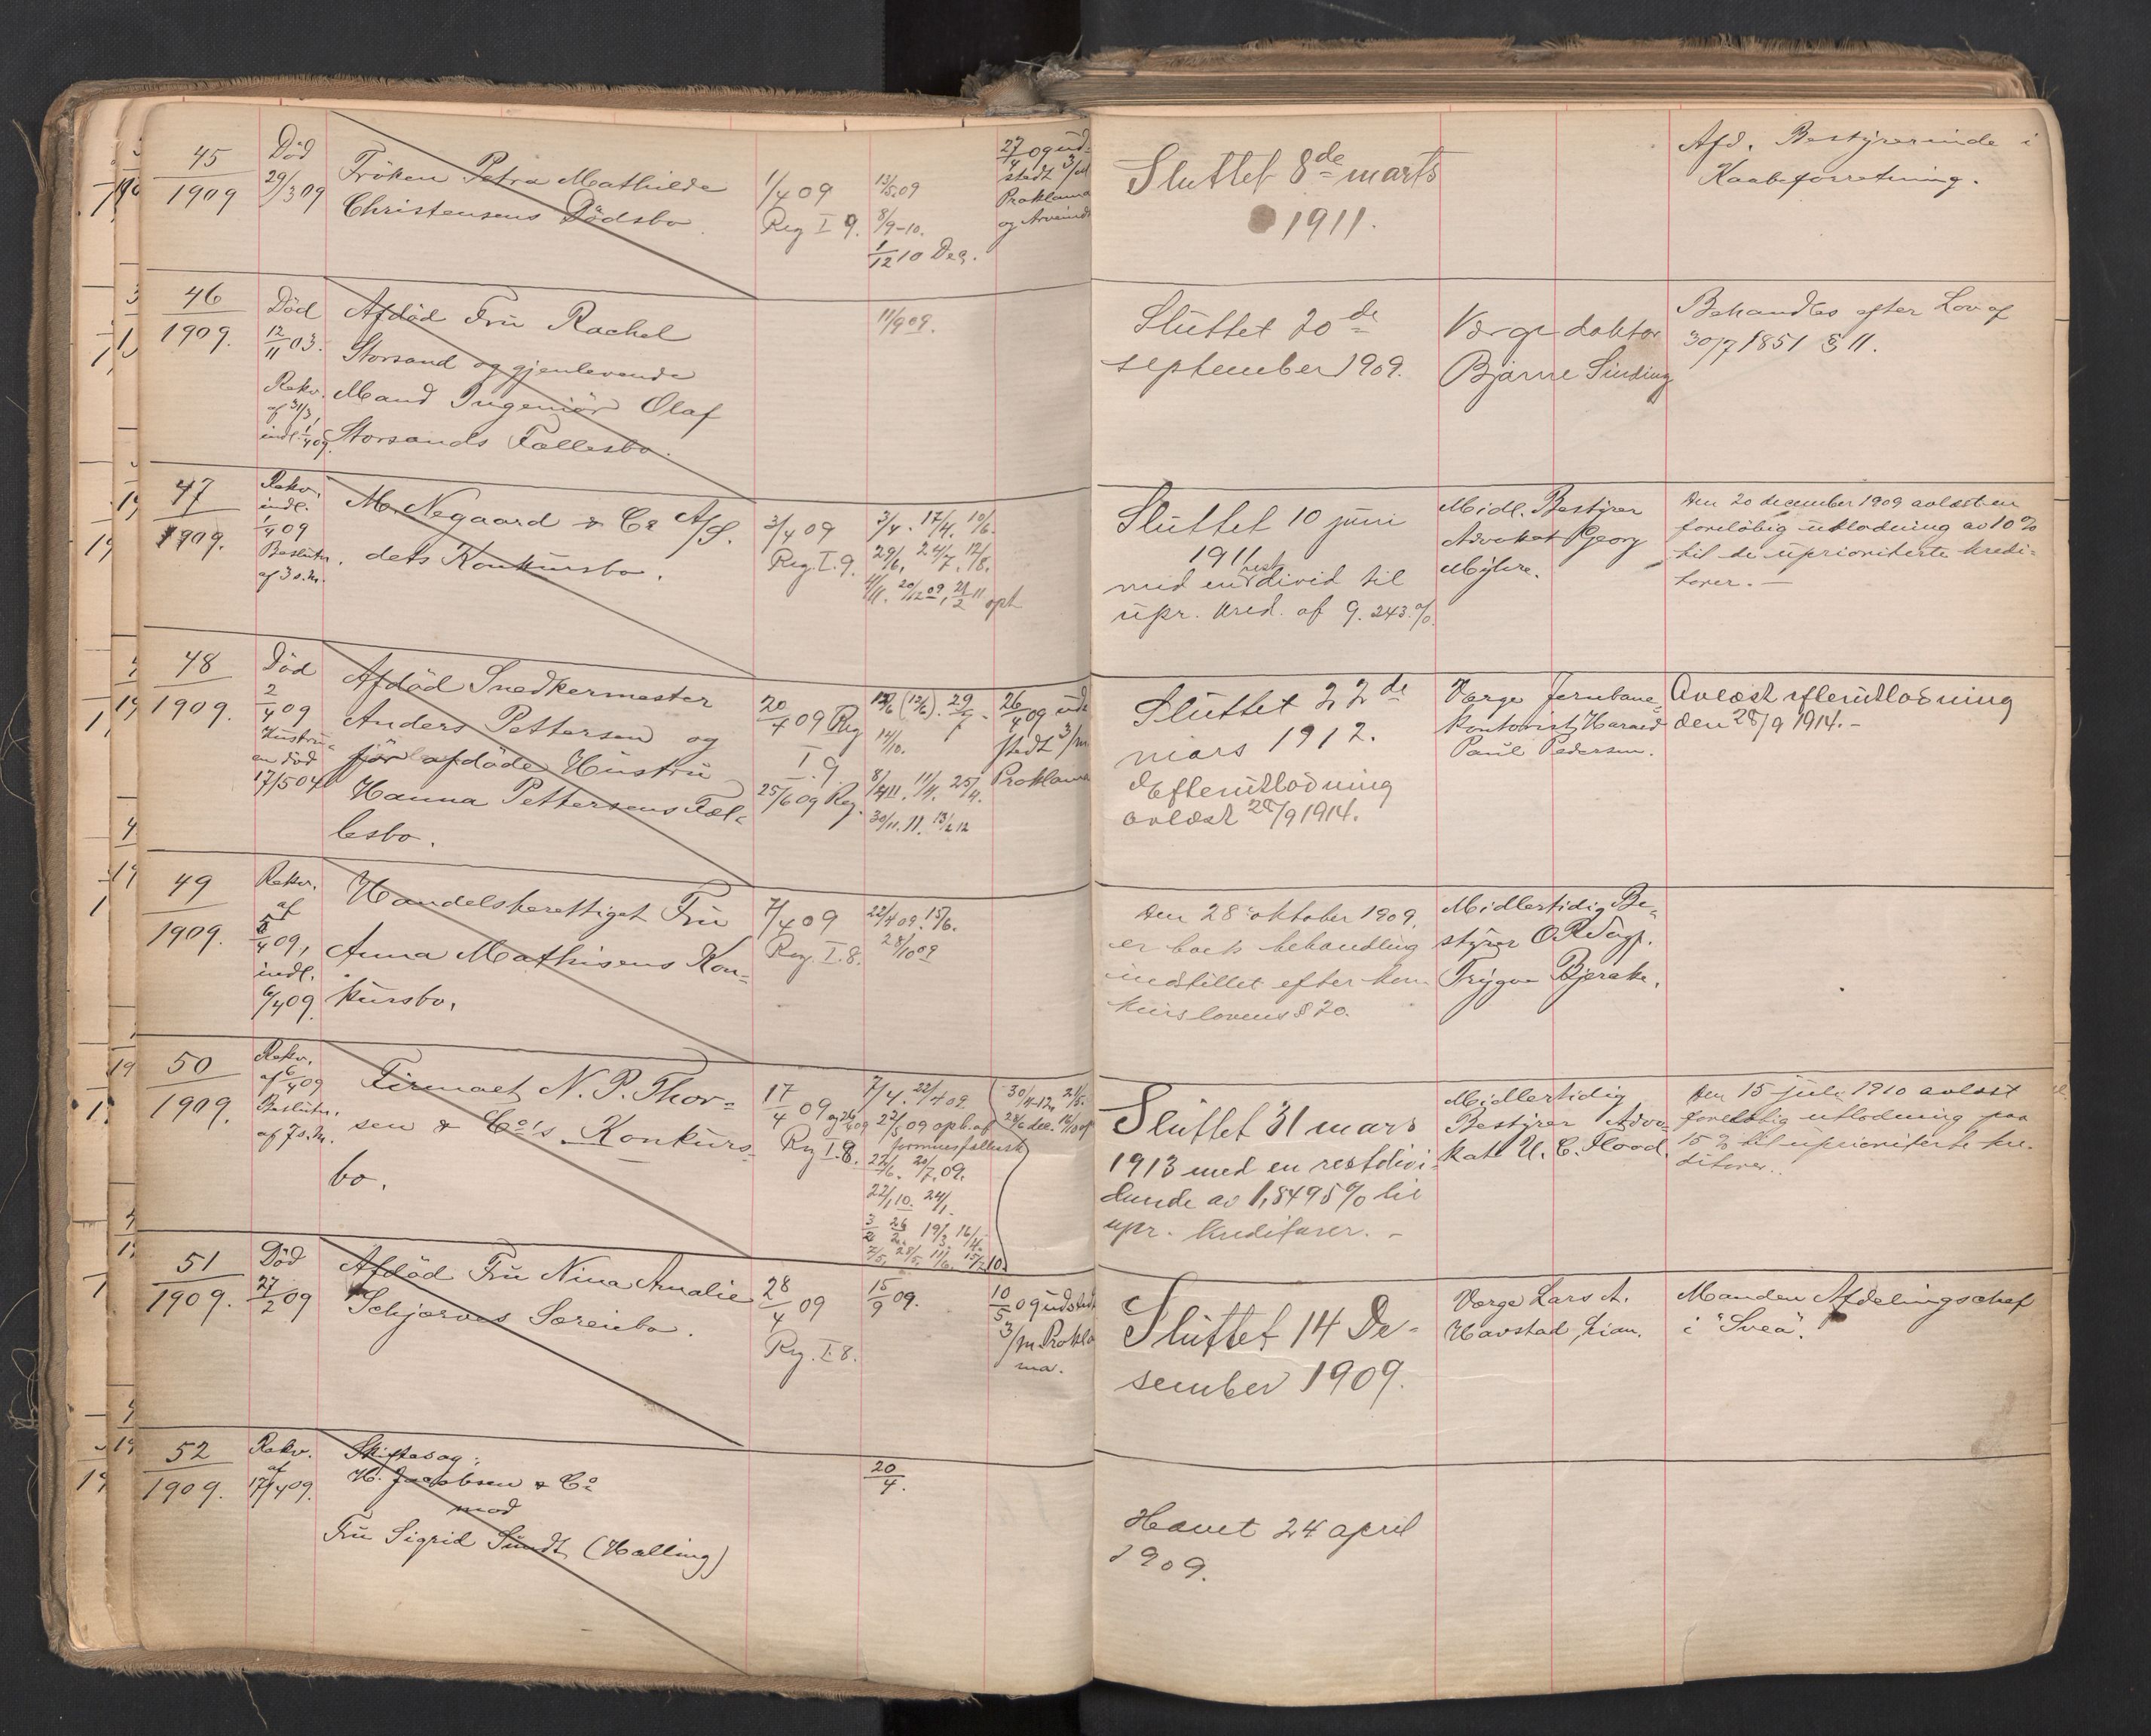 45
1909
Död
29/3 09
Fröken Petra Mathilde
Christensens Dödsbo.
1/4 09
Reg I 9.
13/5 09
8/9-10.
1/12 10 Dec.
27/4 09 ud-
stedt 3/m
Proklama
og Arveindk
Sluttet 8de marts
1911.
Afd. Bestyrerinde i
Kaabeforretning.
46
1909.
Död
12/11 03.
Rekv.
af 31/3,
indl. 1/4 09.
Afdöd Fru Rachel
Storsand og gjenlevende
Mand Ingeniör Olaf
Storsands Fællesbo.
11/9 09.
Sluttet 20de
september 1909.
Værge doktor
Bjarne Sinding
Behandles efter Lov af
30/7 1851 § 11.
47
1909.
Rekv.
indl.
1/4 09
Beslutn.
af 3 s.M.
M. Negaard & Co A/S.
dets Konkursbo.
3/4 09
Reg. I. 9.
3/4. 17/4. 10/6.
29/6. 24/7. 12/8.
4/11. 20/12 09, 21/2 11 oph
Sluttet 10 juni
1911
med en rest divid til
upr. kred. af 9.243 %.
Midl. Bestyrer
Advokat Georg
Myhre.
Den 20 december 1909 avlæst en
foreløbig utlodning av 10%
til de uprioriterte kredi-
torer. —
48
1909.
Död
2/4 09
Hustru-
en död
17/5 04
Afdöd Snedkermester
Anders Pettersen og
før afdöde Hustru
Hanna Pettersens Fæl-
lesbo.
20/4 09 Reg
I. 9.
25/6 09 Reg.
12/6 (12/6). 29/9.
14/10.
8/4 11. 11/4. 25/4.
30/11. 11. 13/2 12
26/4 09 ud-
stedt 3/m
Proklama
Sluttet 22de
mars 1912.
Efterutlodning
avlæst 28/9 1914.
Værge Jernbane-
kontorist Harald
Paul Pedersen.
Avlæst efterutlodning
den 28/9 1914. -
49
1909.
Rekv.
af
5/4 09,
indl.
6/4 09.
Handelsberettiget Fru
Anna Mathisens Kon-
kursbo.
7/4 09
Reg. I. 8.
22/4 09. 15/6.
28/10 09
Den 28 oktober 1909.
er boets behandling
indstillet efter kon-
kurslovens § 20.
Midlertidig Be-
styrer ORSagf.
Trygve Bjerke.
50
1909.
Rekv.
af 6/4 09
Beslutn.
af 7 s.M.
Firmaet N. P. Thor-
sen & Co's Konkurs-
bo.
17/4 09
Reg I. 8.
7/4. 22/4 09.
23/5 09 opb. af
22/6. 20/7. 09.
22/1 10. 24/1.
3/2 26/2. 19/3 16/4.
7/5. 28/5. 11/6. 15/7 10.
30/4-12. 21/5.
Sluttet 31 mars
1913 med en restdivi-
dende av 1,8495 % til
upr. kreditorer. -
Midlertidig
Bestyrer Advo-
kat U. C. Flood.
Den 15 juli 1910 avlæst
foreløbig utlodning paa
15 % til uprioriterte kre-
ditorer.
51
1909.
Död
27/2 09
Afdöd Fru Nina Amalie
Schjarves Særeiebo.
28/4 09
Reg. I. 8.
15/9 09.
10/5 09 udstedt
3/m. Prokla
ma.
Sluttet 14 De-
sember 1909.
Værge Lars A.
Havstad, Lian.
Manden Afdelingschef
i "Svea".
52
1909.
Rekv.
af
17/4 09.
Skiftesag:
H. Jacobsen & Co
mod
Fru Sigrid Sundt (Halling)
20/4.
Hævet 24 april
1909.